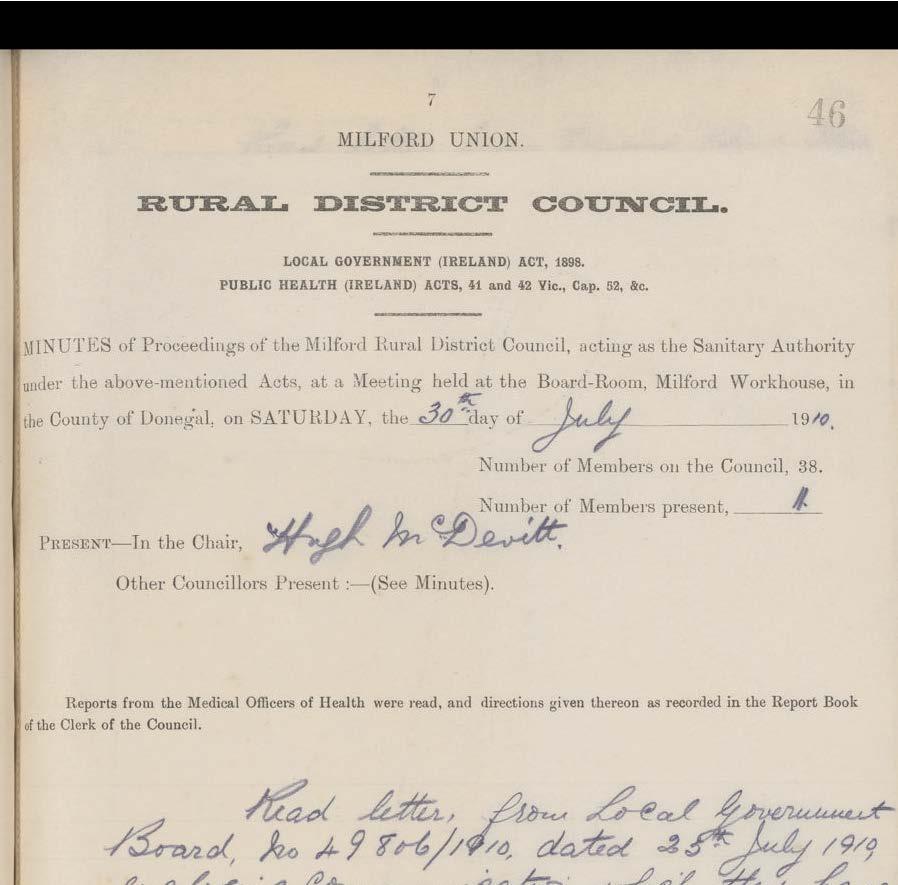 7
46
MILFORD UNION.
RURAL DISTRICT COUNCIL.
LOCAL GOVERNMENT (IRELAND) ACT, 1898.
PUBLIC HEALTH (IRELAND) ACTS, 41 and 42 Vic., Cap. 52, &c.
MINUTES of Proceedings of the Milford Rural District Council, acting as the Sanitary Authority
under the above-mentioned Acts, at a Meeting held at the Board-Room, Milford Workhouse, in
the County of Donegal, on SATURDAY, the 30th day of July 1910.
Number of Members on the Council, 38.
Number of Members present, 11.
PRESENT—In the Chair, Hugh McDevitt.
Other Councillors Present :—(See Minutes).
Reports from the Medical Officers of Health were read, and directions given thereon as recorded in the Report Book
of the Clerk of the Council.
Read letter, from Local Government
Board, No 49806/1910, dated 25th July 1910,